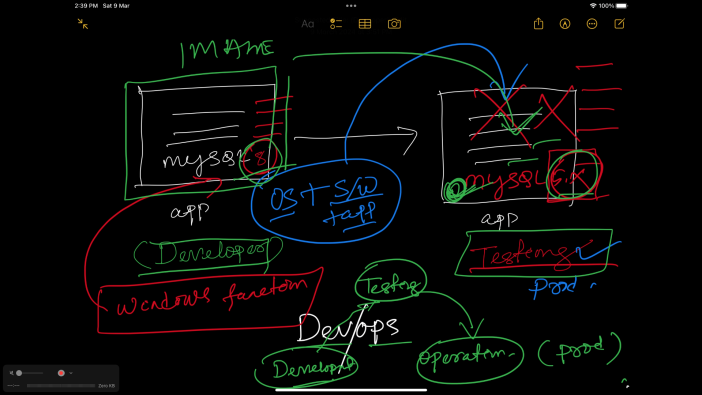 2:39 PM Sat 9 Mar
100%
Aa
IMAGE
mysql 8
app
(Developer)
Windows function
OS + S/W
+ app
mysql 5.x
app
Testing
Prod.
Testing
DevOps
Developer
Operation
(Prod)
Zero KB